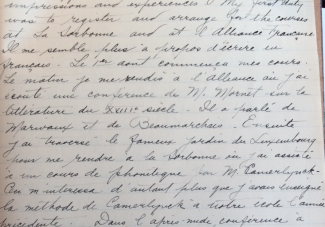 impressions and experiences! My first duty
was to register and arrange for the courses
at La Sorbonne and at l'Alliance Française
Il me semble plus à propos d'écrire en
français. Le 1er dont commença mes cours.
Le matin je me rendis à l'Alliance où j'ai
écouté une conférence de M. Mornet sur la
littérature du XVIIIe siècle. Il a parlé de
Marivaux et de Beaumarchais. Ensuite
j'ai traversé le fameux Jardin du Luxembourg
pour me rendre à la Sorbonne où j'ai assisté
à un cours de phonétique par M. Camerlynck.
m'intéressa d'autant plus que j'avais enseigné
la méthode de Camerlynck à notre école l'année
précédente. Dans l'après-midi conférence à